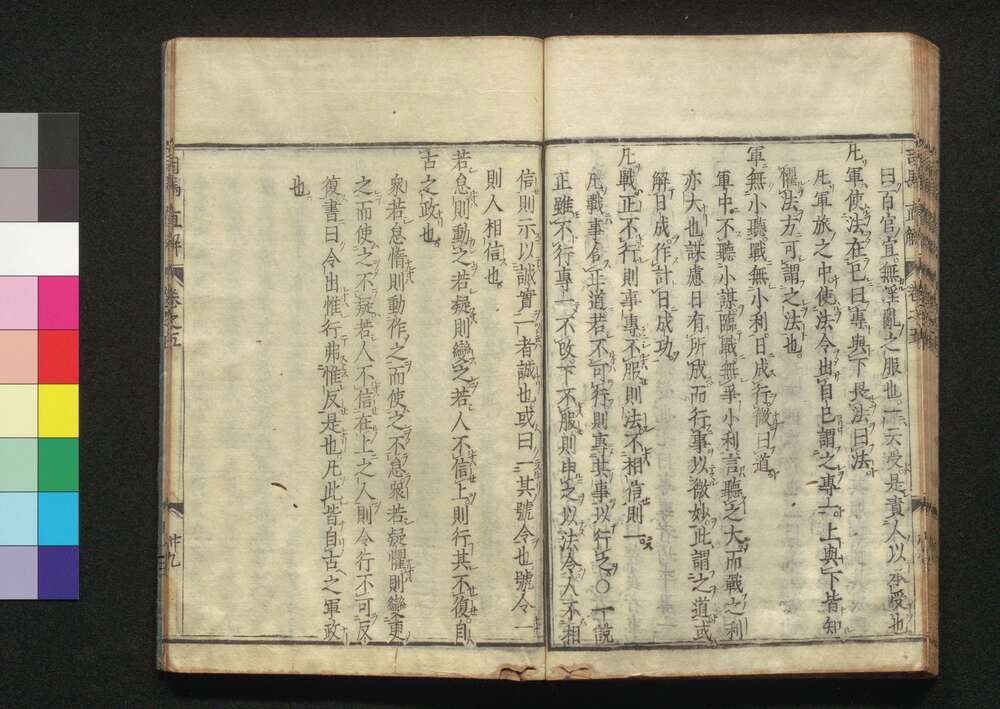 曰百官宜無淫亂之服也一云受是責人以不受也
凡軍使法在己曰專與下畏法曰法
凡軍旅之中使法令出自己謂之專一上與下皆知
懼法方可謂之法也
軍無小聽戰無小利日成行微曰道
軍中不聽小謀臨戰無爭小利言聽之大而戰之利
亦大也謀慮日有所成而行事以微妙此謂之道或
解日成作計日成功
凡戰正不行則事專不服則法不相信則一
凡戰事令正道若不可行則專其事以行之○一說
正雖不行專一不改下不服則申之以法令人不相
信則示以誠實一者誠也或曰一其號令也號令一
則人相信也
若怠則動之若疑則變之若人不信上則行其不復自
古之政也
衆若怠惰則動作之而使之不怠衆若疑懼則變更
之而使之不疑若人不信在上之人則令行不可反
復書曰令出惟行弗惟反是也凡此皆自古之軍政
也
司馬 直解 卷之五 廿九